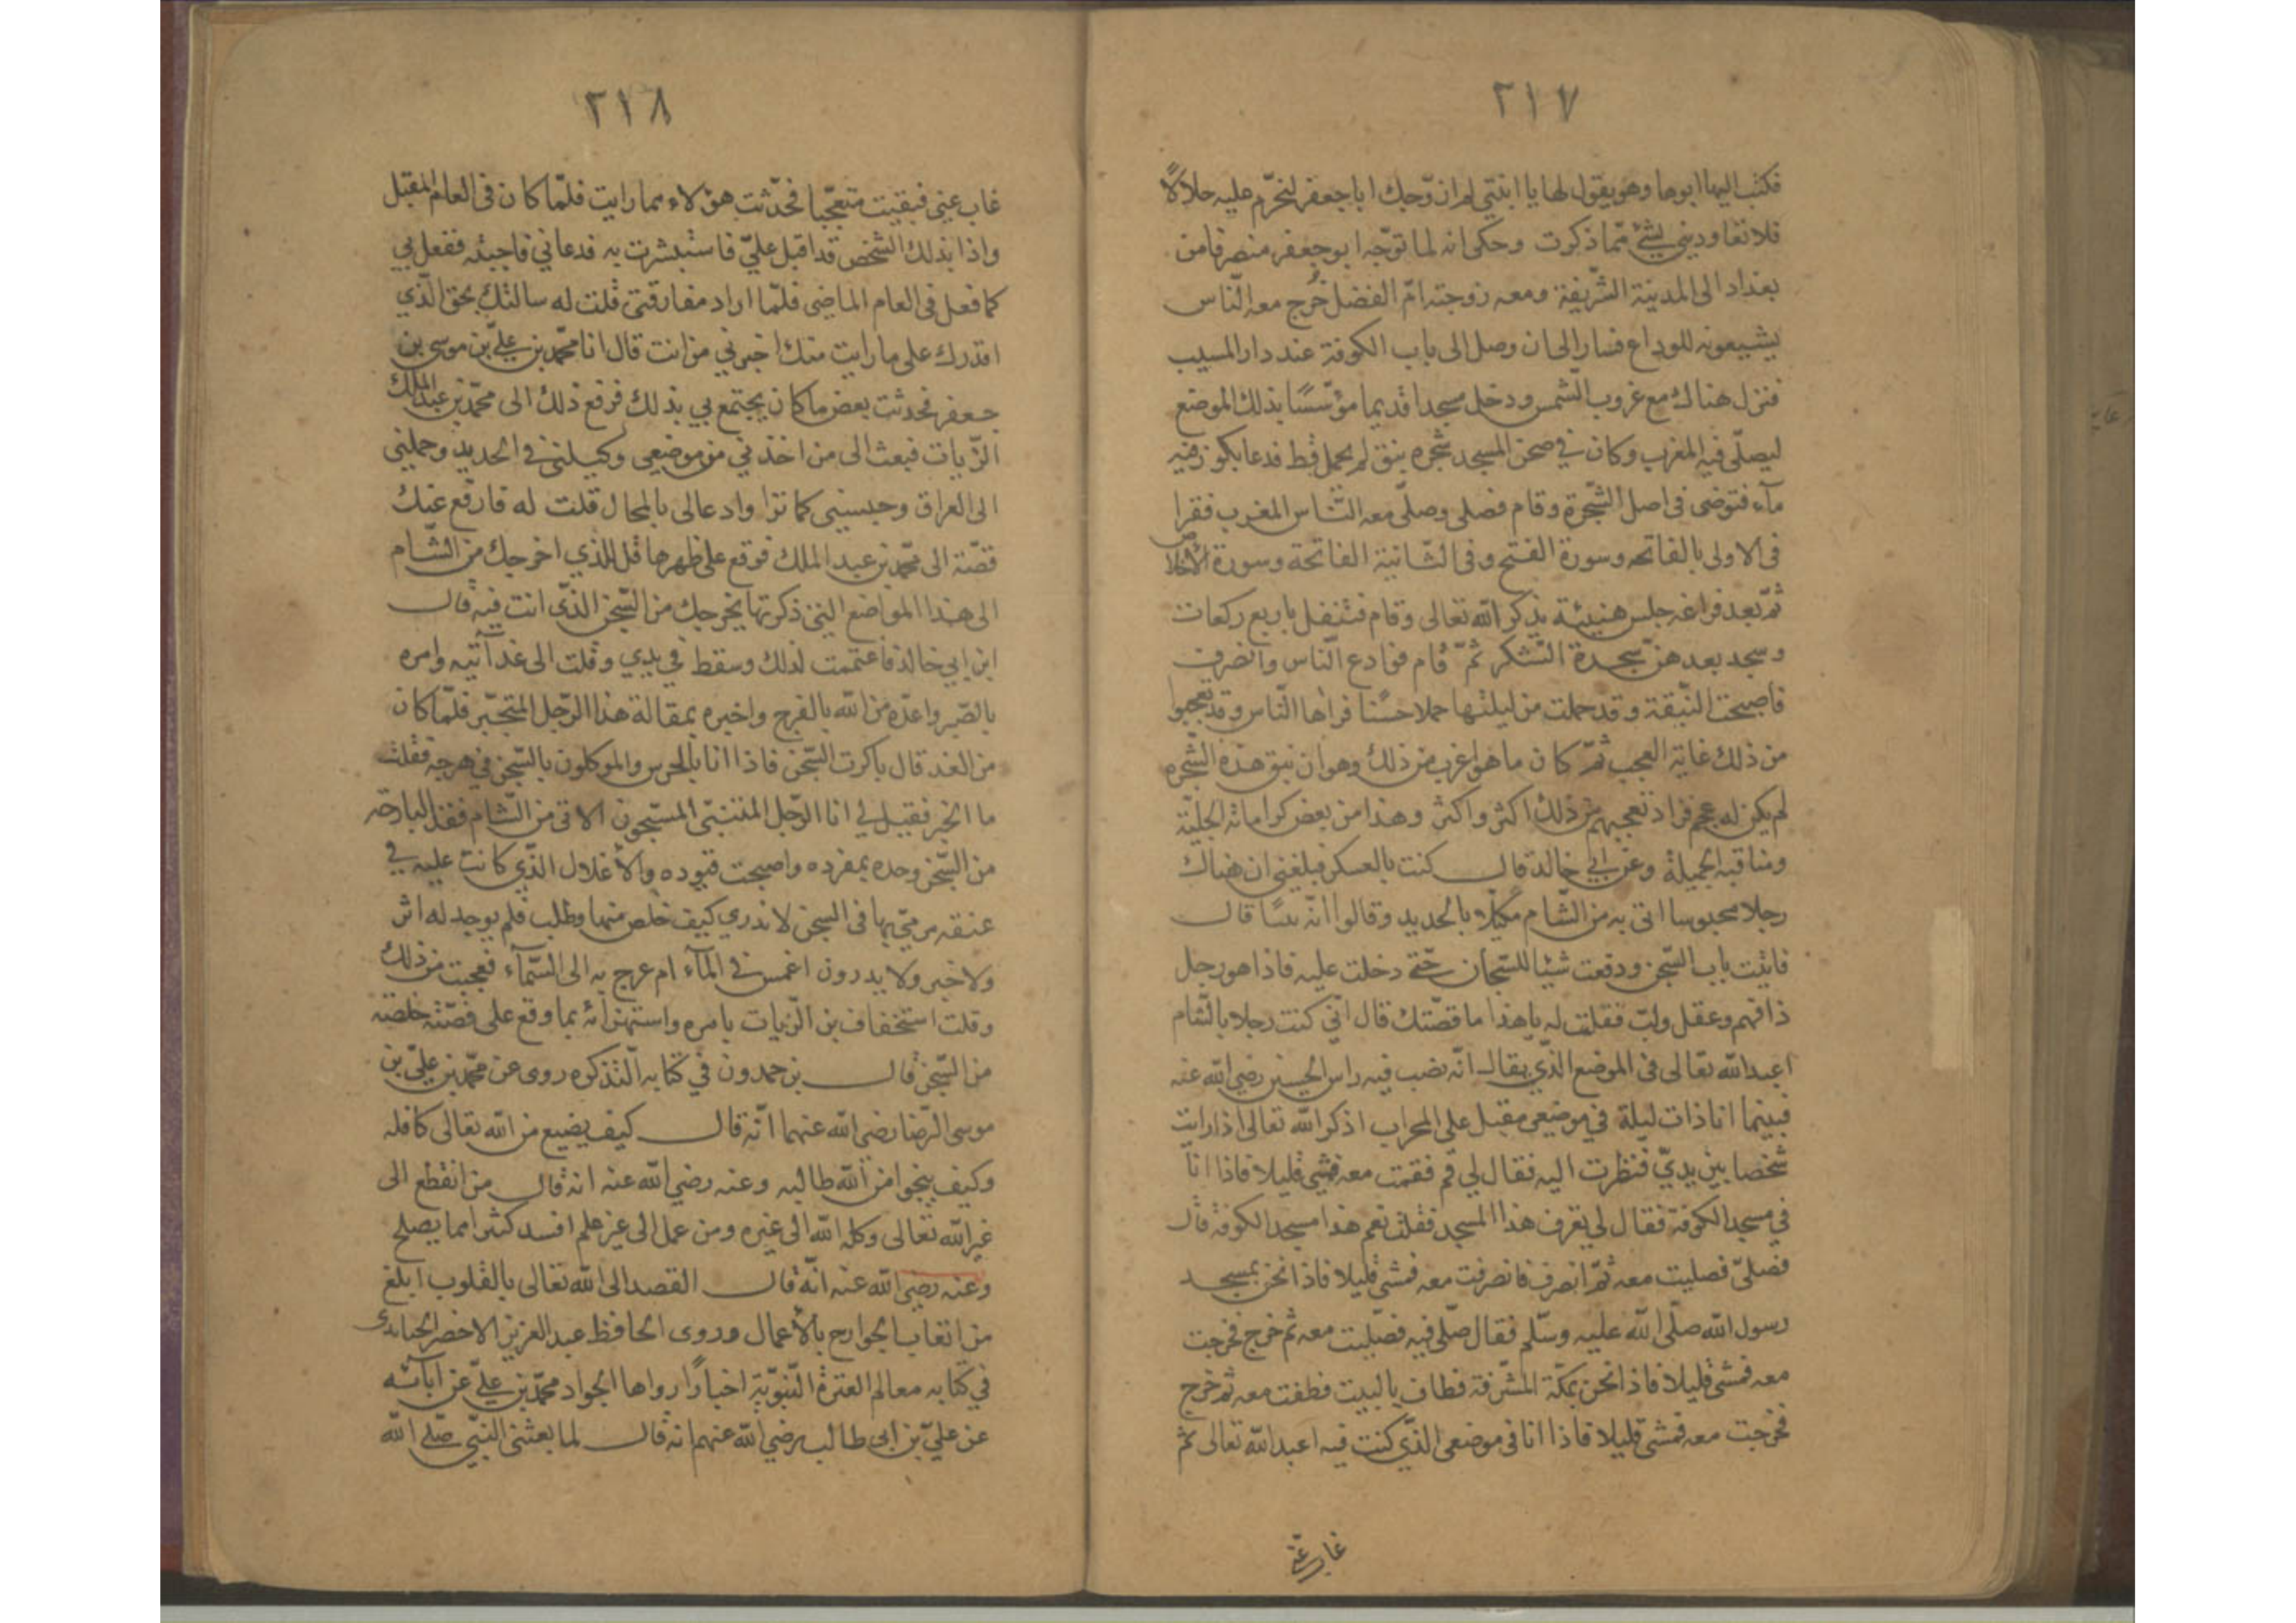 ٢١٧
فكتب اليها ابوها وهو يقول لها يا ابنتي لم ازوّجك ابا جعفر لنحرّم عليه حلالاً
فلا تعاوديني بشئ ممّا ذكرت وحكى انه لما توجّه ابو جعفر منصرفا من
بغداد الى المدينة الشّريفة ومعه زوجته امّ الفضل خرج معه النّاس
يشيعونه للوداع فسار الى ان وصل الى باب الكوفة عند دار المسيب
فنزل هناك مع غروب الشّمس ودخل مسجدا قديما مؤسّسًا بذلك الموضع
ليصلّى فيه المغرب وكان في صحن المسجد شجره نبق لم يحمل قط فدعا بكوز فيه
مآء فتوضى فى اصل الشّجرة وقام فصلى وصلّى معه النّاس المغرب فقرا
فى الاولى بالفاتحه وسورة الفتح وفى الثّانية الفاتحة وسورة الاخلاص
ثمّ بعد فراغه جلس هنيئة يذكر الله تعالى وقام فتنفل باربع ركعات
وسجد بعدهن سجدة الشّكر ثمّ قام فوادع النّاس وانصرف
فاصبحت النّبقة وقد حملت من ليلتها حملا حسنًا فراها النّاس وقد تعجبوا
من ذلك غاية العجب ثمّ كان ما هو اغرب من ذلك وهو ان نبق هذه الشّجره
لم يكن له عجم فزاد تعجبهم من ذلك اكثر واكثر وهذا من بعض كراماته الجليّة
ومناقبه الجميلة وعن ابي خالد قال كنت بالعسكر فبلغني ان هناك
رجلا محبوسا اتى به من الشّام مكبّلا بالحديد وقالوا انّه قال
فاتيت باب السّجن ودفعت شيئا للسّجان حتّى دخلت عليه فاذا هو رجل
ذا فهم وعقل ولبّ فقلت له يا هذا ما قصّتك قال انّي كنت رجلا بالشّام
اعبد الله تعالى فى الموضع الذّي يقال انّه نصب فيه راس الحسين رضي الله عنه
فبينما انا ذات ليلة في موضعي مقبل على المحراب اذكر الله تعالى اذ رايت
شخصا بين يديّ فنظرت اليه فقال لي قم فقمت معه فمشى قليلا فاذا انا
في مسجد الكوفة فقال لي تعرف هذا المسجد فقلت نعم هذا مسجد الكوفة قال
فصلّى فصليت معه ثمّ انصرف فانصرفت معه فمشى قليلا فاذا نحن بمسجد
رسول الله صلّى الله عليه وسلّم فقال صلّى فيه فصلّيت معه ثم خرج فخرجت
معه فمشى قليلا فاذا نحن بمكّة المشرّفة فطاف بالبيت فطفت معه ثم خرج
فخرجت معه فمشى قليلا فاذا انا فى موضعي الذّي كنت فيه اعبد الله تعالى ثم
غاب عنى
٢١٨
غاب عنى فبقيت متعجّبا فحدّثت هؤلاء مما رايت فلمّا كان فى العام المقبل
واذا بذلك الشّخص قد اقبل عليّ فاستبشرت به فدعاني فاجبته ففعل بي
كما فعل فى العام الماضى فلمّا اراد مفارقتى قلت له سالتك بحق الّذي
اقدرك على ما رايت منك اخبرني من انت قال انا محمّد بن عليّ بن موسى بن
جعفر فحدثت بعض ما كان يجتمع بي بذلك فرفع ذلك الى محمّد بن عبد الملك
الزّيات فبعث الى من اخذني من موضعى وكبلنى فى الحديد وحملنى
الى العراق وحبسنى كما ترا وادعا لى بالمحال قلت له فارفع عنك
قصّة الى محمّد بن عبد الملك فوقع على ظهرها قل للذي اخرجك من الشّام
الى هذا المواضع التى ذكرتها يخرجك من السّجن الذّى انت فيه قال
ابن ابي خالد فاغتممت لذلك وسقط في يدي وقلت الى غد آتيه وامره
بالصّبر واعده من الله بالفرج واخبره بمقالة هذا الرّجل المتجّبر فلمّا كان
من الغد قال باكرت السّجن فاذا انا بالحرس والموكلون بالسّجن في هرجة فقلت
ما الخبر فقيل لي انا الرّجل المتنبّى المسّجون الاتى من الشّام فقد البارحة
من السّجن وحده بمفرده واصبحت قيوده والأغلال الذّي كانت عليه في
عنقه مرميّ بها فى السجن لا ندري كيف خلص منها وطلب فلم يوجد له اثر
ولا خبر ولا يدرون اغمس في المآء ام عرج به الى السّمآء فعجبت من ذلك
وقلت استخفاف بن الزّيات بامره واستهزائه بما وقع على قصّته خلصته
من السّجن قال بن حمدون في كتابه التّذكره روى عن محمّد بن عليّ بن
موسى الرّضا رضي الله عنهما انّه قال كيف يضيع من الله تعالى كافله
وكيف ينجوا من الله طالبه وعنه رضي الله عنه انه قال من انقطع الى
غير الله تعالى وكله الله الى غيره ومن عمل الى غير علم افسد كثرا مما يصلح
وعنه رضي الله عنه انّه قال القصد الى الله تعالى بالقلوب ابلغ
من اتعاب الجوارح بالأعمال وروى الحافظ عبد العزيز الاخضر الجنابذى
في كتابه معالم العترة النّبويّة اخبارًا رواها الجواد محمّد بن عليّ عن آبائه
عن عليّ بن ابى طالب رضي الله عنهم انه قال لما بعثنى النبّي صلى الله